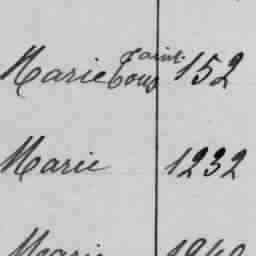 Marie Tous saint. 152
Marie 1232
Marie